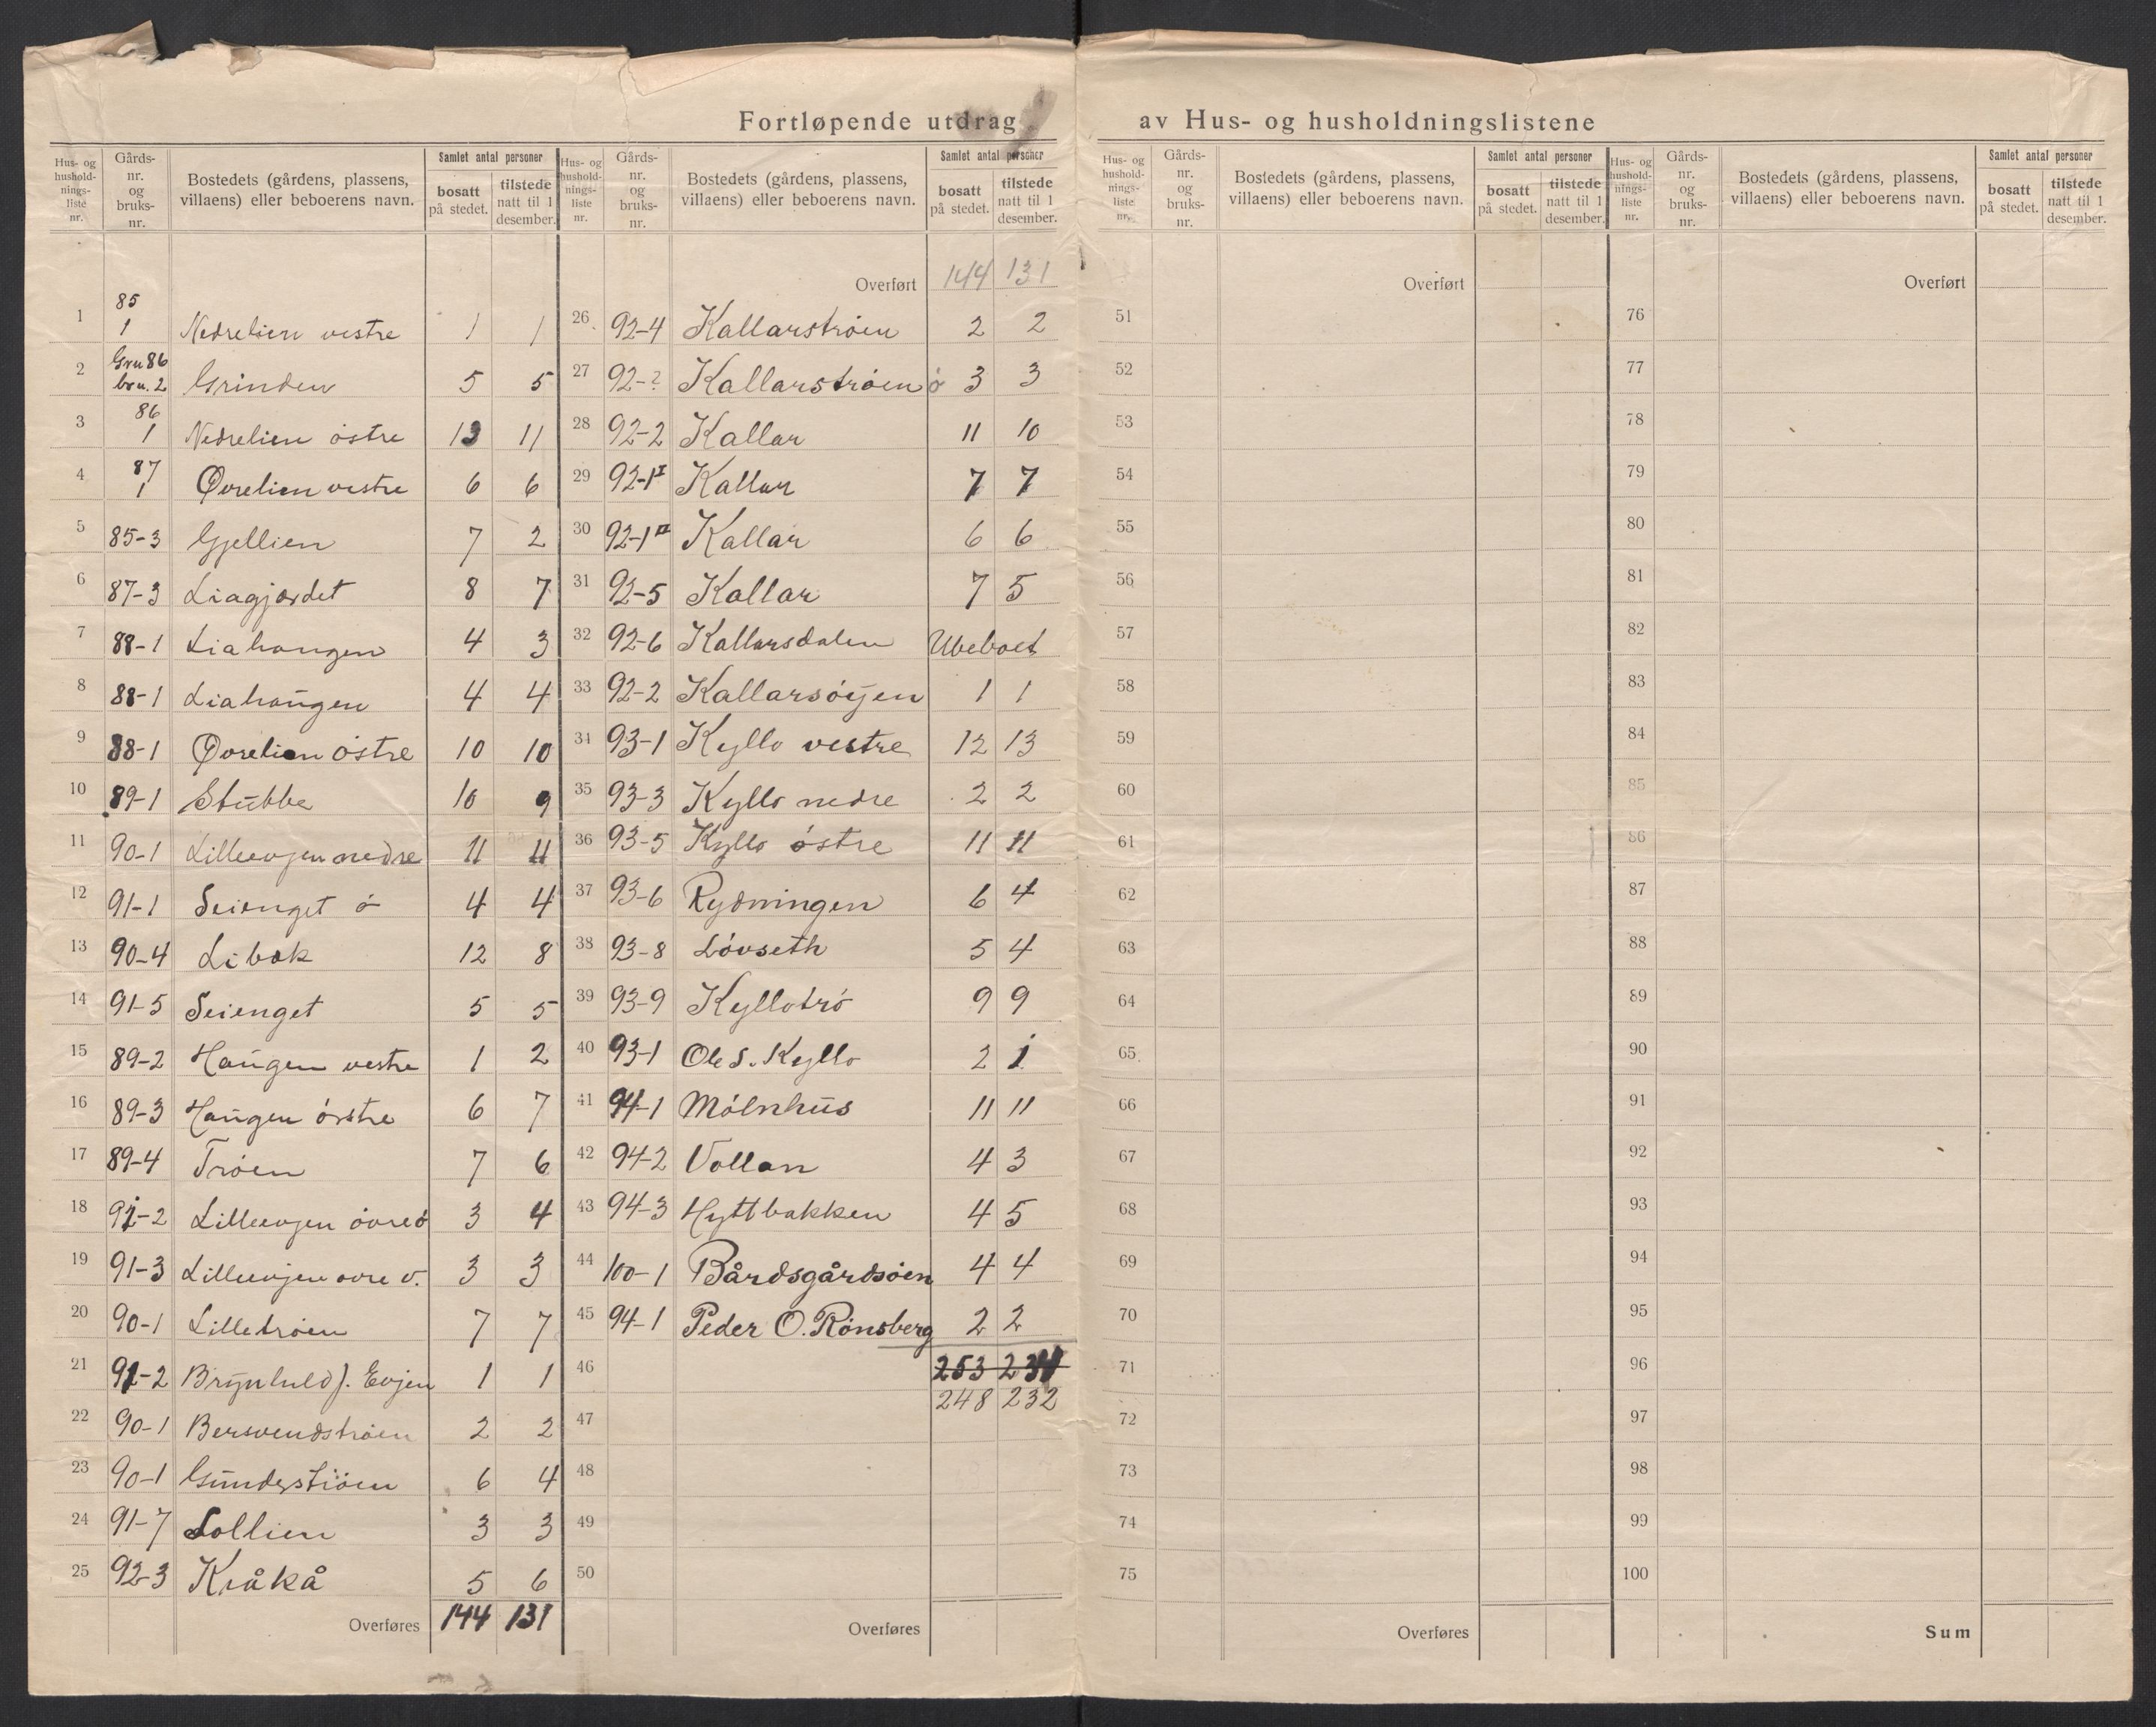 Fortløpende utdrag av Hus- og husholdningslistene
Hus- og hushold- nings- liste nr. Gårds- nr. og bruks- nr. Bostedets (gårdens, plassens, villaens) eller beboerens navn. Samlet antal personer bosatt på stedet. tilstede natt til 1 desember.
1 85 1 Nedrelien vestre 1 1
2 Grn 86 brn. 2 Grinden 5 5
3 86 1 Nedrelien östre 13 11
4 87 1 Øvrelien vestre 6 6
5 85-3 Gjellien 7 2
6 87-3 Liagjærdet 8 7
7 88-1 Liahaugen 4 3
8 88-1 Liahaugen 4 4
9 88-1 Øvrelien östre 10 10
10 89-1 Stubbe 10 9
11 90-1 Lilleevjen nedre 11 11
12 91-1 Seienget ö 4 4
13 90-4 Libæk 12 8
14 91-5 Seienget 5 5
15 89-2 Haugen vestre 1 2
16 89-3 Haugen östre 6 7
17 89-4 Tröen 7 6
18 91-2 Lilleevjen övre ö 3 4
19 91-3 Lilleevjen övre v. 3 3
20 90-1 Lilletröen 7 7
21 91-2 Brynhild J. Evjen 1 1
22 90-1 Bersvendströen 2 2
23 90-1 Gunderströen 6 4
24 91-7 Sollien 3 3
25 92-3 Kråkå 5 6
Overføres 144 131
Hus- og hushold- nings- liste nr. Gårds- nr. og bruks- nr. Bostedets (gårdens, plassens, villaens) eller beboerens navn. Samlet antal personer bosatt på stedet. tilstede natt til 1 desember.
Overført 144 131
26 92-4 Kallarströen 2 2
27 92-? Kallarströen ö 3 3
28 92-2 Kallar 11 10
29 92-1 I Kallar 7 7
30 92-1 II Kallar 6 6
31 92-5 Kallar 7 5
32 92-6 Kallarsdalen Ubeboet
33 92-2 Kallarsöyen 1 1
34 93-1 Kyllo vestre 12 13
35 93-3 Kyllo nedre 2 2
36 93-5 Kyllo östre 11 11
37 93-6 Rydningen 6 4
38 93-8 Lövseth 5 4
39 93-9 Kyllotrö 9 9
40 93-1 Ole S. Kyllo 2 1
41 94-1 Mölnhus 11 11
42 94-2 Vollan 4 3
43 94-3 Hyttbakken 4 5
44 100-1 Bårdsgårdsöen 4 4
45 94-1 Peder O. Rönsberg 2 2
46 253 234
248 232
47
48
49
50
Overføres
Hus- og hushold- nings- liste nr. Gårds- nr. og bruks- nr. Bostedets (gårdens, plassens, villaens) eller beboerens navn. Samlet antal personer bosatt på stedet. tilstede natt til 1 desember.
Overført
51
52
53
54
55
56
57
58
59
60
61
62
63
64
65
66
67
68
69
70
71
72
73
74
75
Overføres
Hus- og hushold- nings- liste nr. Gårds- nr. og bruks- nr. Bostedets (gårdens, plassens, villaens) eller beboerens navn. Samlet antal personer bosatt på stedet. tilstede natt til 1 desember.
Overført
76
77
78
79
80
81
82
83
84
85
86
87
88
89
90
91
92
93
94
95
96
97
98
99
100
Sum